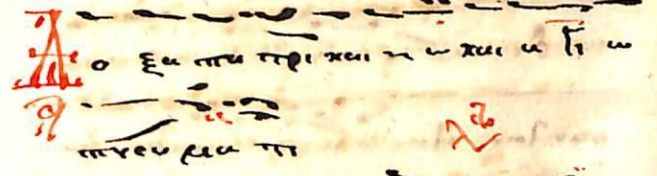 Δο ξα πα τρι και υι ω και α γι ω
πνευ μα τι